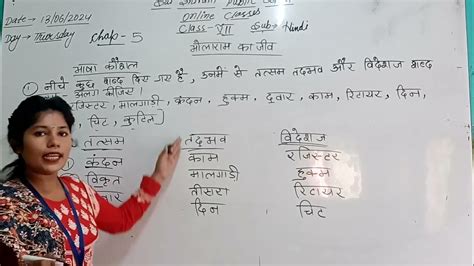 Public
Date - 13/06/2024 Online Classes
Day → Thursday Chap - 5 Class - VII Sub → Hindi
भोलाराम का जीव
भाषा कौशल
① नीचे कुछ शब्द दिए गए हैं, उनमें से तत्सम तद्भव और विदेशज शब्द
अलग कीजिए।
रजिस्टर, मालगाडी, क्रंदन, हुक्म, दुवार, काम, रिटायर, दिन,
चिट, कुटिल]
तत्सम तद्भव विदेशज
क्रंदन काम रजिस्टर
विकृत मालगाडी हुक्म
तीसरा रिटायर
दिन चिट